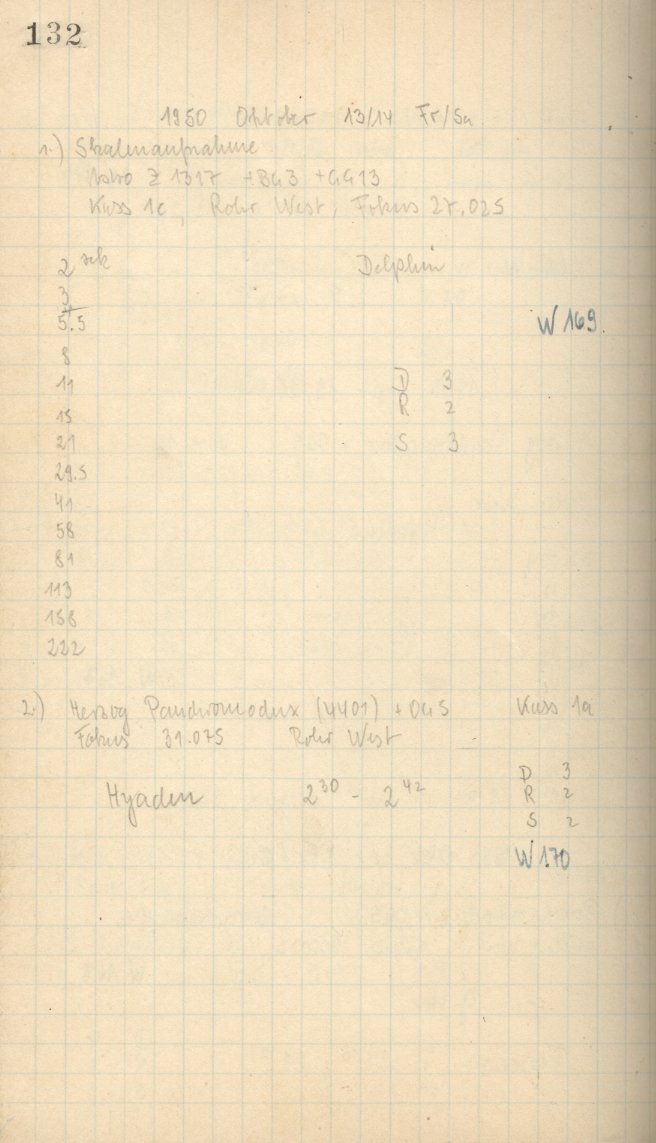 132
1950 Oktober 13/14 Fr/Sa
1.) Skalenaufnahme
Astro Z 1317 + BG3 + GG13
Kass 1c, Rohr West, Fokus 27.025
2 sek Delphin
3
5.5 W 169.
8
11 D 3
15 R 2
21 S 3
29.5
41
58
81
113
158
222
2.) Herzog Panchromodux (4401) + OG5 Kass 1a
Fokus 31.075 Rohr West
D 3
Hyaden 2³⁰ - 2⁴² R 2
S 2
W 170